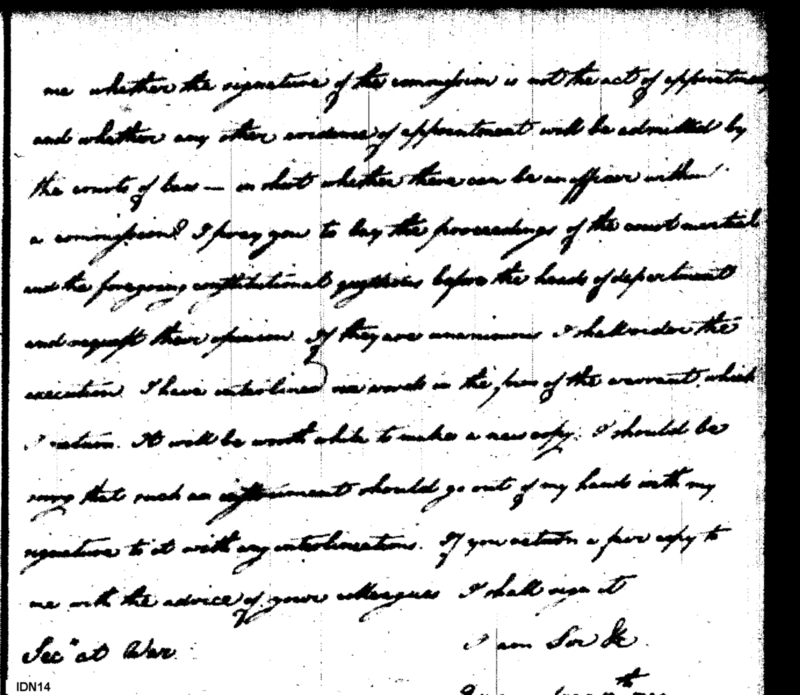 me whether the signature of the commission is not the act of appointment
and whether any other evidence of appointment will be admitted by
the courts of law — in short whether there can be an officer without
a commission? I pray you to lay the proceedings of the court martial
and the foregoing constitutional questions before the heads of department
and request their opinion. If they are unanimous I shall order the
execution. I have interlined words in the of the warrant, which
I return. It will be worth while to make a new copy. I should be
sorry that such an instrument should go out of my hands with my
signature to it with any interlineations. If you return a fair copy to
me with the advice of your colleagues I shall sign it
Secy at War
I am Sir &c
IDN14